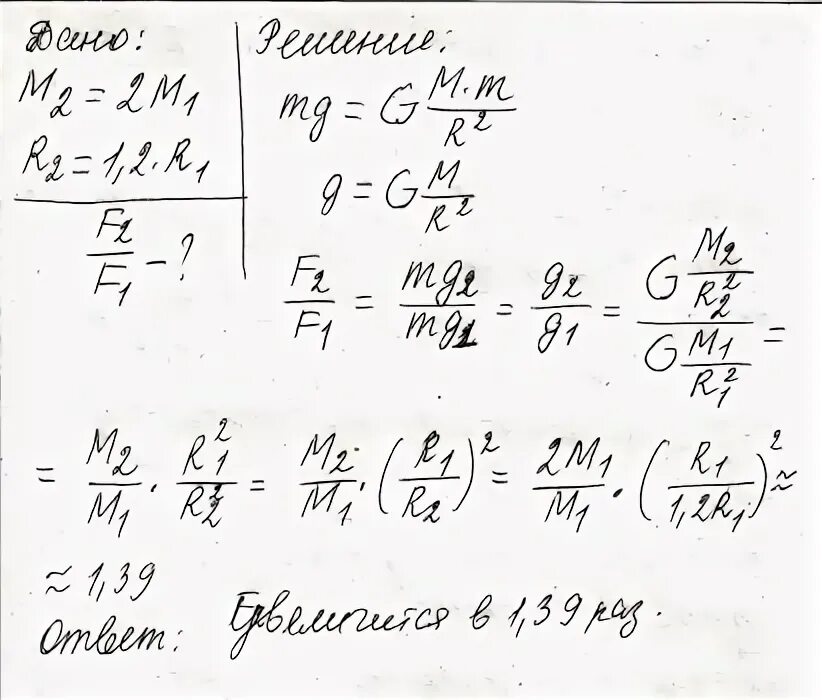 Дано:
M₂ = 2M₁
R₂ = 1,2·R₁
F₂/F₁ - ?
Решение:
mg = G M·m/R²
g = G M/R²
F₂/F₁ = mg₂/mg₁ = g₂/g₁ = (G M₂/R₂²)/(G M₁/R₁²) =
= M₂/M₁ · R₁²/R₂² = M₂/M₁ · (R₁/R₂)² = 2M₁/M₁ · (R₁/1,2R₁)² ≈
≈ 1,39
Ответ: Увеличится в 1,39 раз.